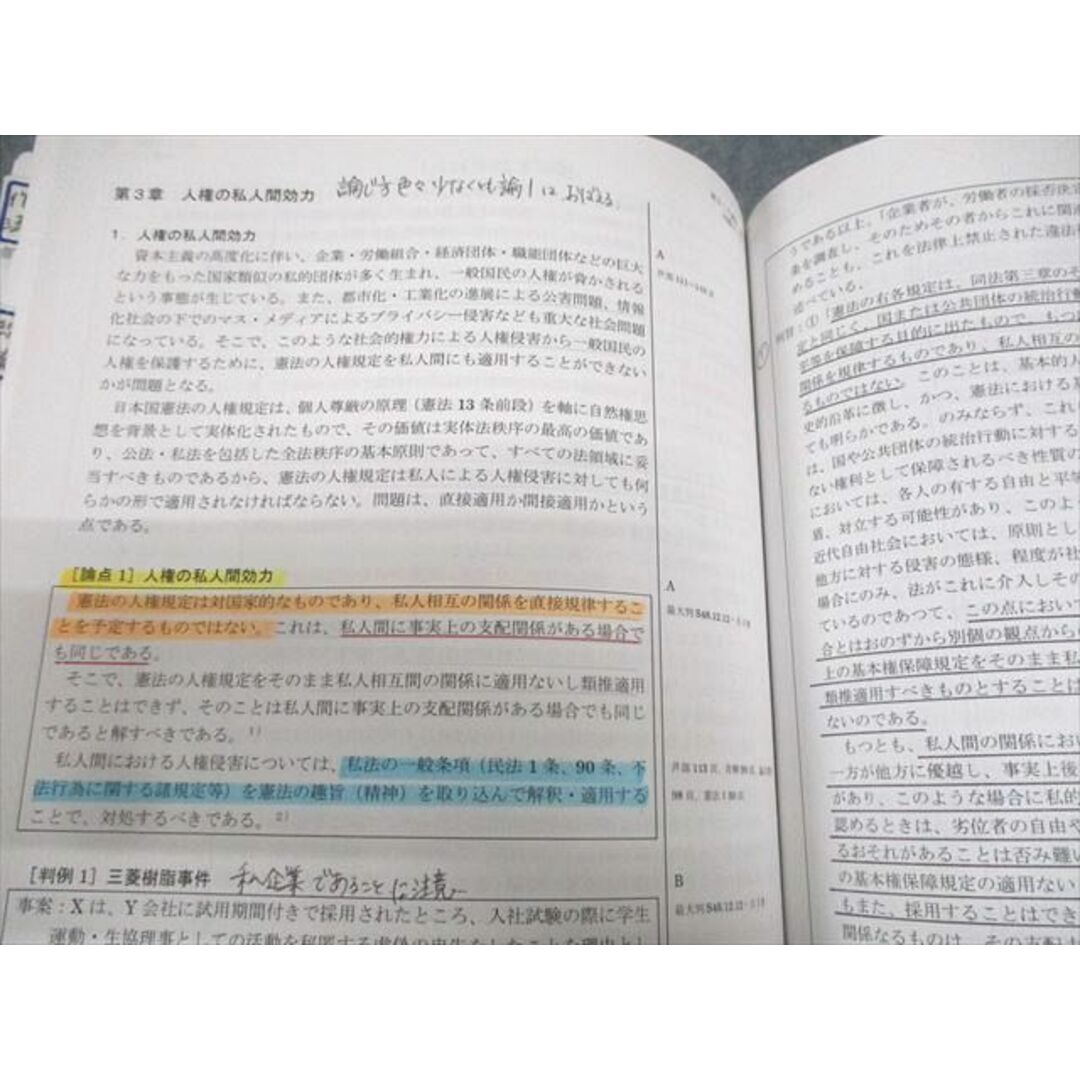 第3章 人権の私人間効力 論じ方色々 少なくとも論1は おぼえる。
1. 人権の私人間効力
資本主義の高度化に伴い、企業・労働組合・経済団体・職能団体などの巨大
な力をもった国家類似の私的団体が多く生まれ、一般国民の人権が脅かされる
という事態が生じている。また、都市化・工業化の進展による公害問題、情報
化社会の下でのマス・メディアによるプライバシー侵害なども重大な社会問題
になっている。そこで、このような社会的権力による人権侵害から一般国民の
人権を保護するために、憲法の人権規定を私人間にも適用することができない
かが問題となる。
日本国憲法の人権規定は、個人尊厳の原理（憲法13条前段）を軸に自然権思
想を背景として実体化されたもので、その価値は実体法秩序の最高の価値であ
り、公法・私法を包括した全法秩序の基本原則であって、すべての法領域に妥
当すべきものであるから、憲法の人権規定は私人による人権侵害に対しても何
らかの形で適用されなければならない。問題は、直接適用か間接適用かという
点である。
［論点1］人権の私人間効力
憲法の人権規定は対国家的なものであり、私人相互の関係を直接規律するこ
とを予定するものではない。これは、私人間に事実上の支配関係がある場合で
も同じである。
そこで、憲法の人権規定をそのまま私人相互間の関係に適用ないし類推適用
することはできず、そのことは私人間に事実上の支配関係がある場合でも同じ
であると解すべきである。1)
私人間における人権侵害については、私法の一般条項（民法1条、90条、不
法行為に関する諸規定等）を憲法の趣旨（精神）を取り込んで解釈・適用する
ことで、対処するべきである。2)
［判例1］三菱樹脂事件 私企業であることに注意
事案：Xは、Y会社に試用期間付きで採用されたところ、入社試験の際に学生
運動・生協理事としての活動を秘匿する虚偽の申告をしたことを理由とし
A
A
最大判S48.12.12
B
最大判S48.12.12
うである以上、「企業者が、労働者の採否決定
条を調査し、そのためその者からこれに関連
めることも、これを法律上禁止された違法
述べている。
判旨：①「憲法の右各規定は、同法第三章のそ
定と同じく、国または公共団体の統治行動
平等を保障する目的に出たもので、もつ
関係を規律するものであり、私人相互の
るものではない。このことは、基本的人
史的沿革に徴し、かつ、憲法における基
ても明らかである。のみならず、これ
は、国や公共団体の統治行動に対する
ない権利として保障されるべき性質の
においては、各人の有する自由と平等
盾、対立する可能性があり、このよ
近代自由社会においては、原則とし
他方に対する侵害の態様、程度が社
場合にのみ、法がこれに介入しその
ているのであつて、この点におい
合とはおのずから別個の観点から
上の基本権保障規定をそのまま私
類推適用すべきものとすることは
ないのである。
もつとも、私人間の関係にお
一方が他方に優越し、事実上後
があり、このような場合に私的
認めるときは、劣位者の自由や
るおそれがあることは否み難い
の基本権保障規定の適用ない
もまた、採用することはでき
関係なるものは、その支配